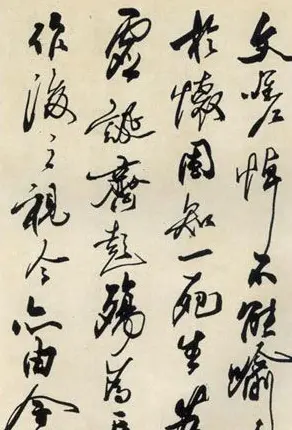 文嗟悼不能喻之
於懷固知一死生為
虛誕齊彭殤為
作後之視今亦由今